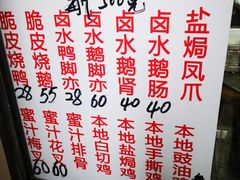 500克
盐焗凤爪
卤水鹅肠 40
卤水鹅肾 60
卤水鹅脚亦 28
脆皮烧鹅 55
脆皮烧鸭 28
本地豉油
本地手撕鸡
本地盐焗鸡
本地白切鸡
蜜汁排骨
蜜汁花叉 60
蜜汁梅叉 60